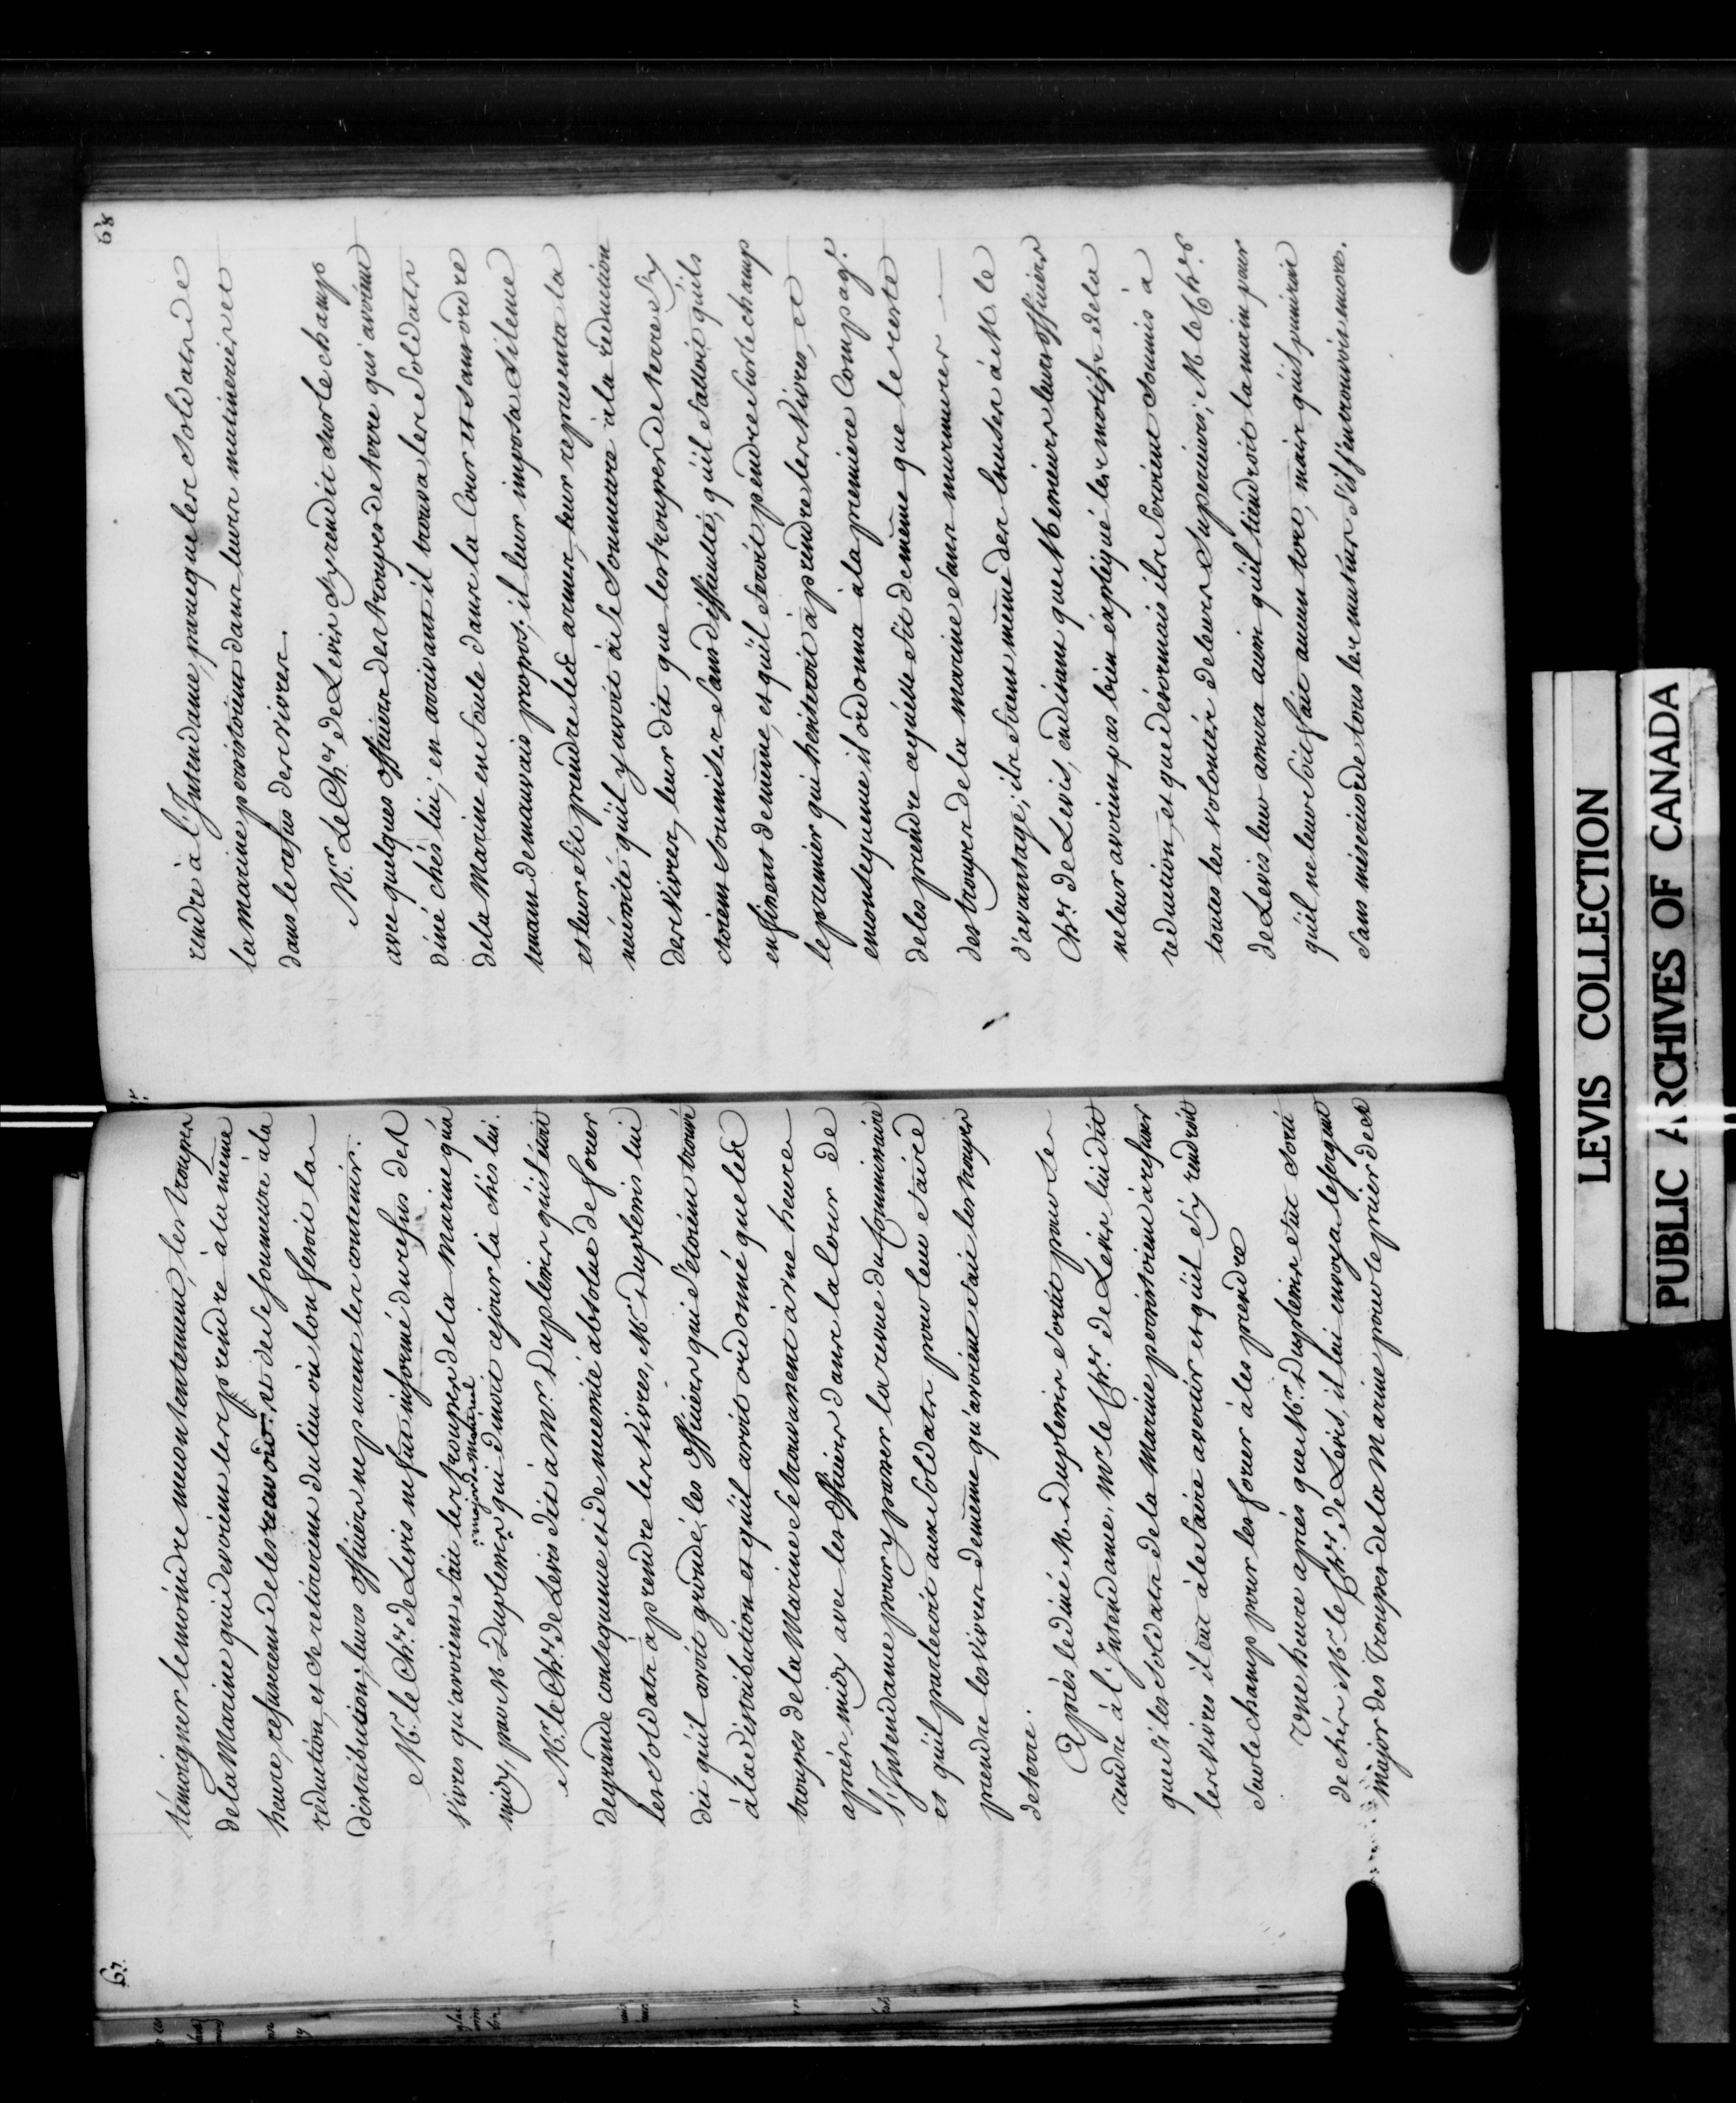 67.
témoigner le moindre mecontentement, les troupes
de la Marine qui devoient les prendre à la même
heure, refuserent de les recevoir et de se soumettre à la
réduction, et se retirerent du lieu où l'on feroit la
distribution; leurs officiers ne purent les contenir.
Mr. le Chr. de Levis ne fut informé du refus des
vivres qu'avoient fait les troupes de la Marine qu'à
midy, par M. Duplessis, major de la Marine qui dinoit ce jour là chés lui.
Mr. le Chr. de Levis dit à Mr. Duplessis qu'il étoit
de grande consequence et de necessité absolue de forcer
les soldats à prendre les vivres, Mr. Duplessis lui
dit qu'il avoit grondé les officiers qui s'étoient trouvé
à la distribution et qu'il avoit ordonné que les
troupes de la Marine se trouvassent à une heure
après midy avec les officiers dans la cour de
l'Intendance pour y passer la revue du Commissaire
et qu'il parleroit aux soldats pour leur faire
prendre les vivres de même qu'avoient fait les troupes
de terre.
Après le diné M. Duplessis sortit pour se
rendre à l'Intendance. Mr. le Chr. de Levis lui dit
que si les soldats de la Marine persistoient à refuser
les vivres il eut à le faire avertir et qu'il s'y rendroit
sur le champ pour les forcer à les prendre
Une heure après que Mr. Duplessis fut sorti
de chés Mr. le Chr. de Levis, il lui envoya le sergent
Major des Troupes de la Marine pour le prier de se
68
rendre à l'Intendance, parceque les soldats de
la marine persistoient dans leurs mutineries et
dans le refus des vivres.
Mr. Le Chr. de Levis s'y rendit sur le champ
avec quelques officiers des troupes de terre qui avoient
diné chés lui; en arrivant il trouva les soldats
de la Marine en foule dans la Cour et sans ordre
tenant de mauvais propos; il leur imposa silence
et leur fit prendre les armes, leur representa la
necessité qu'il y avoit à se soumettre à la reduction
des vivres, leur dit que les troupes de terre s'y
étoient soumises sans difficulté, qu'il falloit qu'ils
en fissent de même, et qu'il feroit pendre sur le champ
le premier qui hesiteroit à prendre les vivres, et
en consequence il ordonna à la premiere Compage.
de les prendre ce qu'elle fit de même que le reste
des troupes de la marine sans murmurer
d'avantage; ils firent même des excuses à M. le
Chr. de Levis, en disant que Messieurs leurs officiers
ne leur avoient pas bien expliqué les motifs de la
reduction, et que désormais ils seroient soumis à
toutes les volontés de leurs superieurs; M. le Chr.
de Levis leur assura aussi qu'il tiendroit la main pour
qu'il ne leur soit fait aucun tort, mais qu'il puniroit
sans misericorde tous les mutins s'il s'en trouvoit encore.
LEVIS COLLECTION
PUBLIC ARCHIVES OF CANADA